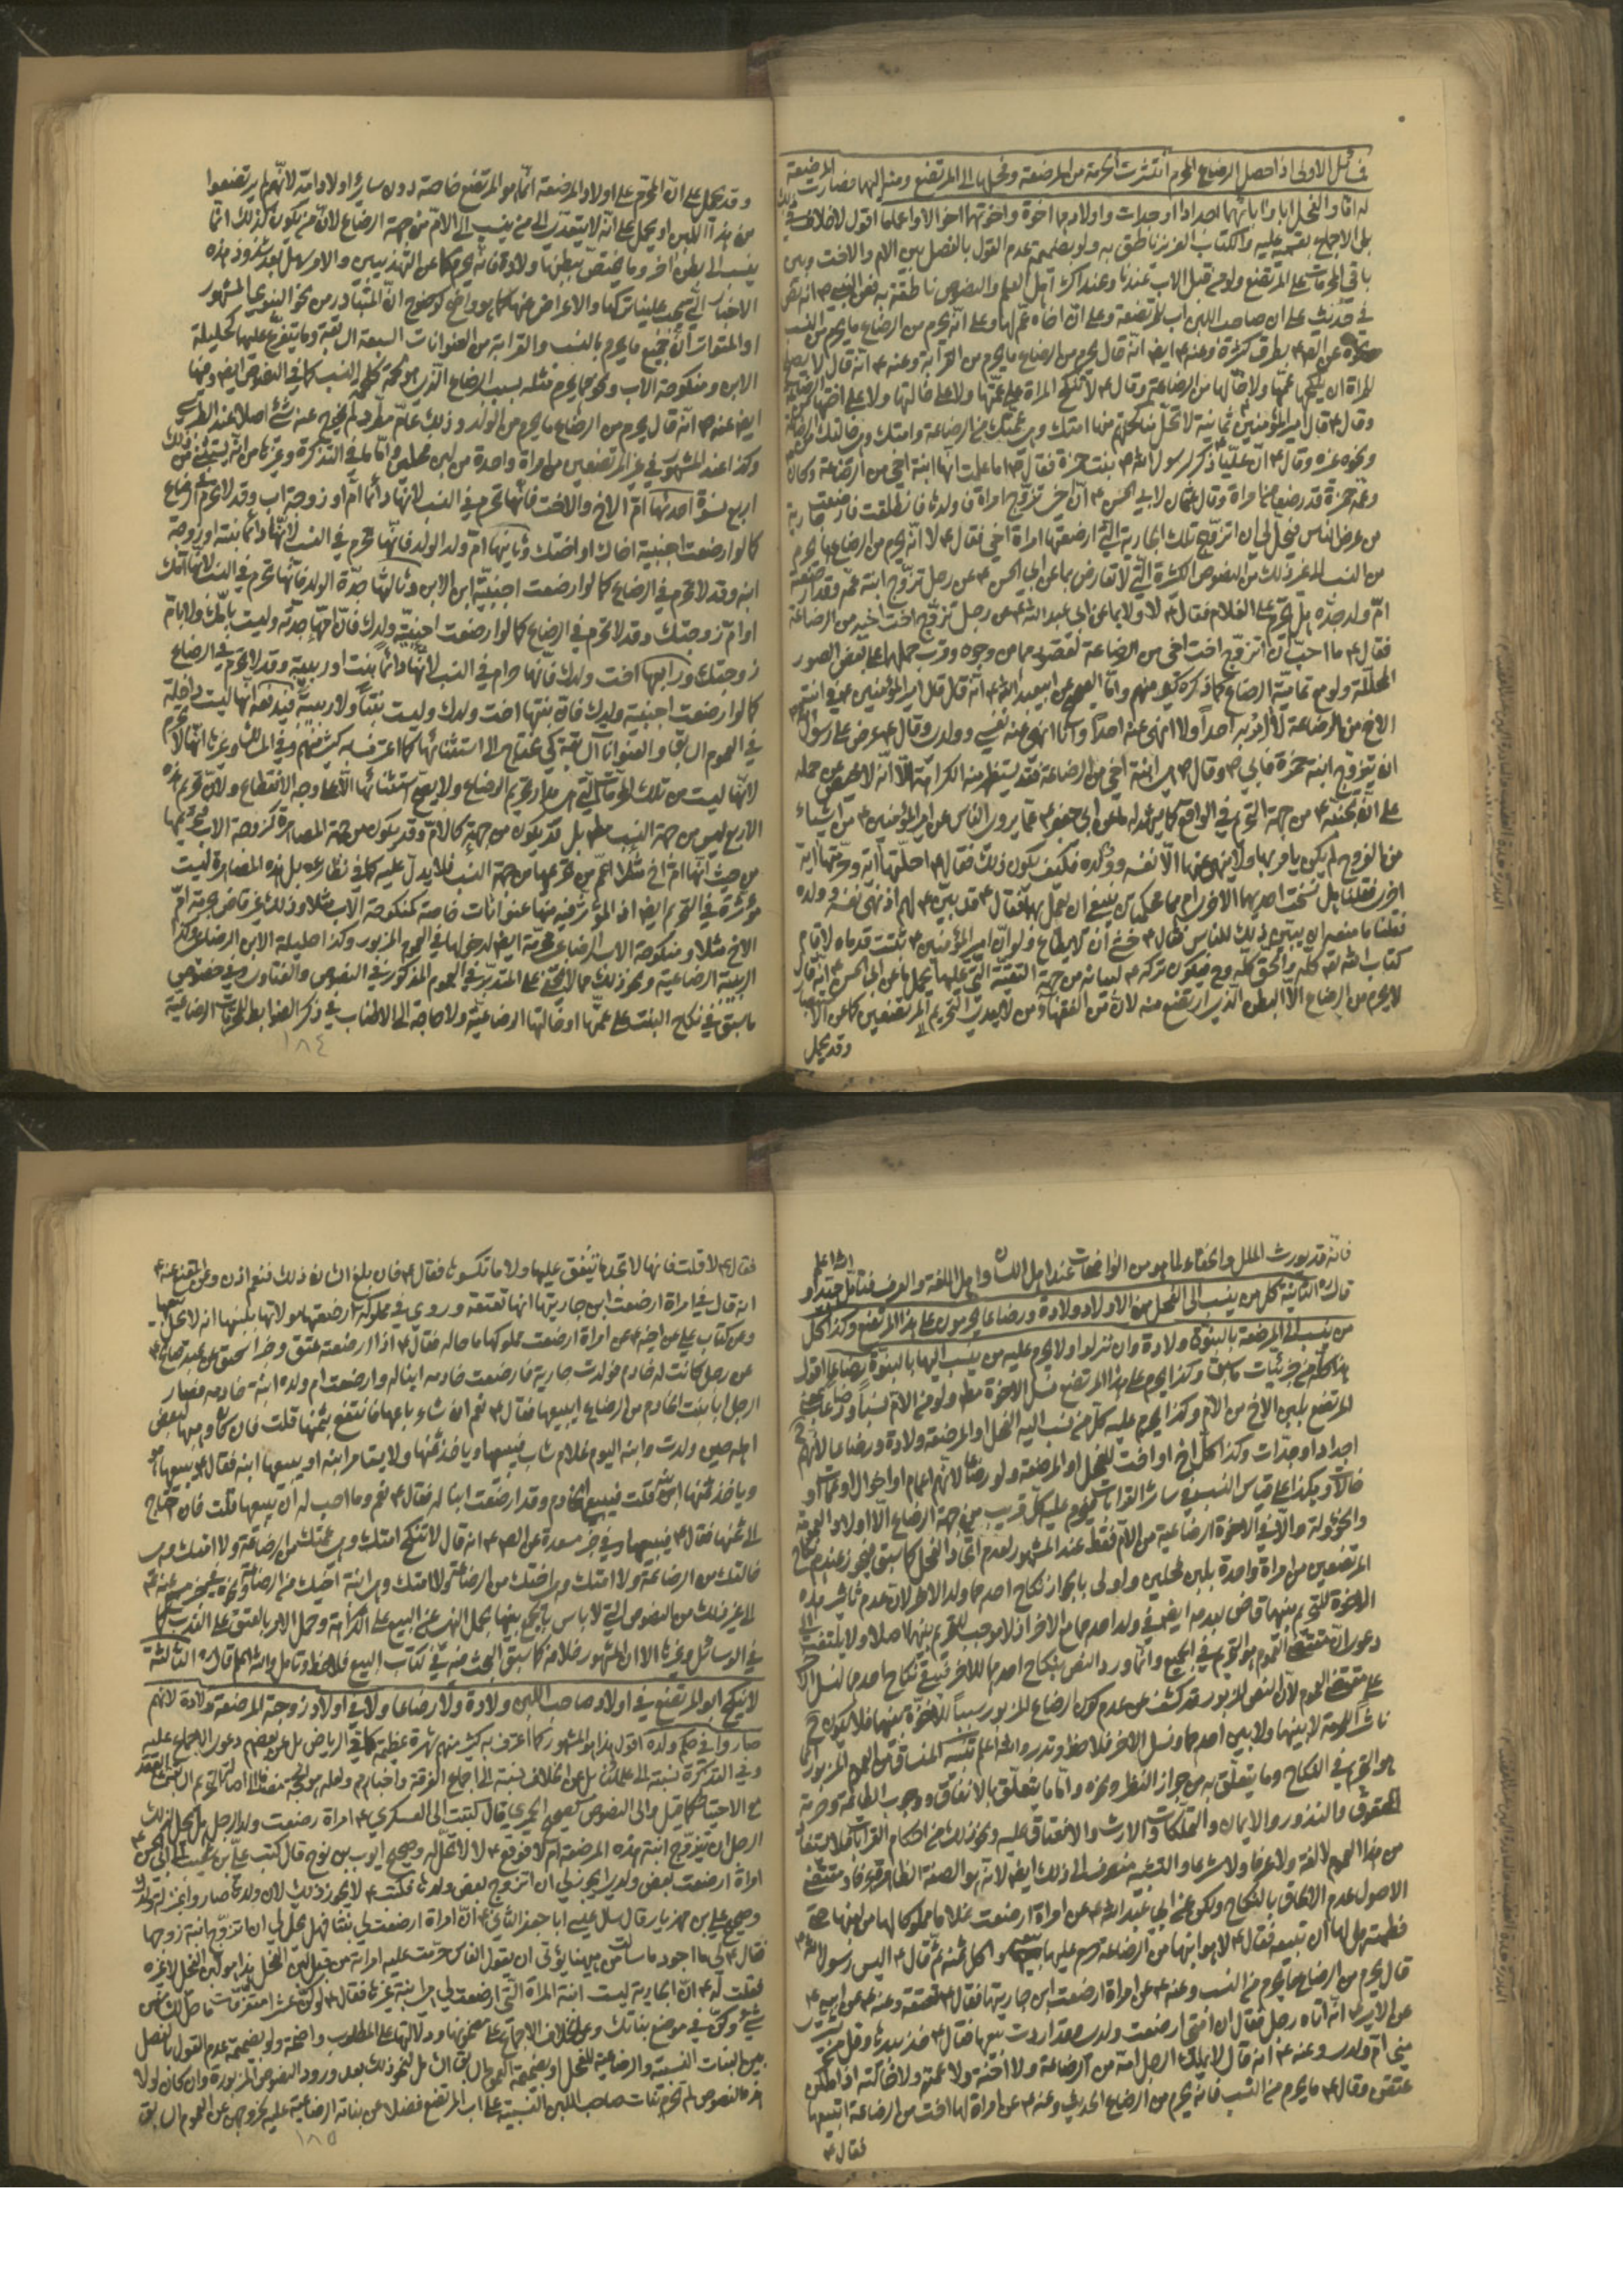 مسائل الاولى اذا حصل الرضاع المحرم انتشرت الحرمة من المرضعة وفحلها الى المرتضع ومنه اليهما فصارت المرضعة
له اما والفحل ابا وآبائهما اجدادا وجدات واولادهما اخوة واخوتهما اخوالا واعماما اقول لا خلاف في ذلك
بل الاجماع بقسميه عليه والكتاب العزيز ناطق به ولو بضميمة عدم القول بالفصل بين الام والاخت وبين
باقي المحرمات على المرتضع ولو من قبل الاب عندنا وعند اكثر اهل العلم والنصوص ناطقة به
على ان صاحب اللبن اب للمرتضعة وعلى ان اخاه عم لها وعلى انه يحرم من الرضاع ما يحرم من النسب
عن الص ع بطرق كثيرة وعنه ع ايض انه قال يحرم من الرضاع ما يحرم من القرابة وعنه ع انه قال لا يصلح
للمراة ان ينكحها عمها ولا خالها من الرضاعة وقال ع لا تنكح المراة على عمتها ولا على خالتها ولا على اختها من الرضاعة
وقال ع قال امير المؤمنين ع ثمانية لا تحل مناكحتهم منها امتك وهي عمتك من الرضاعة وامتك وهي خالتك من الرضاعة
ونحوه غيره وقال ع ان عليا ذكر لرسول الله ص بنت حمزة فقال ص اما علمت انها ابنة اخي من الرضاعة وكان
وعمه حمزة قد رضعا من امراة وقال عثمان لابي الحسن ع ان اخي تزوج امراة فاولدها فانطلقت فارضعت جارية
من عرض الناس فيحل لي ان اتزوج تلك الجارية التي ارضعتها امراة اخي فقال ع لا انه يحرم من الرضاع ما يحرم
من النسب الى غير ذلك من النصوص الكثيرة التي لا تعارض بما عن ابي الحسن ع عن رجل تزوج ابنة عمه وقد ارضعته
ام ولد جده هل تحرم على الغلام فقال ع لا ولا بما عن ابي عبد الله ع عن رجل تزوج اخت اخيه من الرضاعة
فقال ع ما احب ان اتزوج اخت اخي من الرضاعة لقصورهما من وجوه وقرب حملهما على بعض الصور
المحللة ولو مع تمامية الرضاع كما ذكره غير منهم واما الصحيح عن ابي عبد الله ع انه قال قال امير المؤمنين ع في ابنة
الاخ من الرضاعة لا آمر به احدا ولا انهى عنه احدا وانا انهى عنه نفسي وولدي وقال ع عرض على رسول الله ص
ان يتزوج ابنة حمزة فابى ص وقال ص هي ابنة اخي من الرضاعة فقد يستظهر منه الكراهة الا انه لا محيص عن حمله
على التقية من جهة التحريم في الواقع كما يشهد له ما عن ابي جعفر ع عما يروي الناس عن امير المؤمنين ع من اشياء
من الفروج لم يكن يامر بها ولا ينهى عنها الا نفسه وولده فكيف يكون ذلك فقال ع احلتها آية وحرمتها آية
اخرى فقلنا هل نسخت احديهما الاخرى ام هما محكمتان ينبغي ان يعمل بهما فقال ع قد بين ع لهم اذ نهى نفسه وولده
فقلنا ما منعه ان يبين ذلك للناس فقال ع خشي ان لا يطاع ولو ان امير المؤمنين ع ثبتت قدماه لاقام
كتاب الله تع كله والحق كله وح فيكون تركه ع لبيانه من جهة التقية التي عليها يحمل ما عن ابي الحسن ع انه قال
لا يحرم من الرضاع الا البطن الذي ارتضع منه لان من الفقهاء من لا يعدي التحريم الى المرتضعين كما عن الاستبصار
وقد يحمل
وقد يحمل على ان المحرم على اولاد المرضعة انما هو المرتضع خاصة دون سائر اولاد امه لانهم لم يرتضعوا
من هذا اللبن او يحمل على انه لا يتعدى الى من ينسب الى الام من جهة الرضاع لان من يكون كذلك انما
ينسب الى بطن اخر وما يختص ببطنها ولادة فانه يحرم كما عن التهذيبين والامر سهل بعد شذوذ هذه
الاخبار التي يجب علينا تركها والاعراض عنها كما هو واضح كوضوح ان المتبادر من نحو النبوي المشهور
او المتواتر ان جميع ما يحرم بالنسب والقرابة من العنوانات السبعة السابقة وما يتفرع عليها كحليلة
الابن ومنكوحة الاب ونحوهما يحرم مثله بسبب الرضاع الذي هو لحمة كلحمة النسب كما في النصوص ايض ومنها
ايض عنه ص انه قال يحرم من الرضاع ما يحرم من الولد وذلك عام مطرد لم يخرج عنه شيء اصلا عند الطبرسي
وكذا عند المشهور في غير المرتضعين من امراة واحدة من لبن فحلين واما ما في التذكرة وغيرها من انه يستثنى من ذلك
اربع نسوة احديها ام الاخ والاخت فانها تحرم في النسب لانها دائما ام او زوجة اب وقد لا تحرم في الرضاع
كما لو ارضعت اجنبية اخاك او اختك وثانيها ام ولد الولد فانها تحرم في النسب لانها دائما بنته او زوجة
ابنه وقد لا تحرم في الرضاع كما لو ارضعت اجنبية ابن الابن وثالثها جدة الولد فانها تحرم في النسب لانها امك
او ام زوجتك وقد لا تحرم في الرضاع كما لو ارضعت اجنبية ولدك فان امها جدته وليست بامك ولا بام
زوجتك ورابعها اخت ولدك فانها حرام في النسب لانها دائما بنت او ربيبة وقد لا تحرم في الرضاع
كما لو ارضعت اجنبية ولدك فان بنتها اخت ولدك وليست بنتا ولا ربيبة فيدفعه انها ليست داخلة
في العموم السابق والعنوانات السابقة كي يحتاج الى استثنائها كما اعترف به كثير منهم وفي المسالك وغيرها انها لا تحرم
لانها ليست من تلك المحرمات التي هي مدار تحريم الرضاع ولا يصح استثنائها الا على وجه الانقطاع ولان تحريم هذه
الاربع ليس من جهة النسب مط بل قد يكون من جهته كالام وقد يكون من جهة المصاهرة كزوجة الاب
من حيث انها ام اخ مثلا اعم من تحريمها من جهة النسب فلا يدل عليه كما في نظائره بل هذه المصاهرة ليست
مؤثرة في التحريم ايض اذ المؤثر فيه منها عنوانات خاصة كمنكوحة الاب مثلا وذلك غير قاض بحرمة ام
الاخ مثلا ومنكوحة الاب الرضاعي محرمة ايض لدخولها في العموم المزبور وكذا حليلة الابن الرضاعي وكذا
الربيبة الرضاعية ونحو ذلك مما لا يخفى على المتدبر في العموم المذكور في النصوص والفتاوى وفي خصوص
ما سبق في نكاح البنت على عمتها او خالتها الرضاعية ولا حاجة الى الاطناب في ذكر الضوابط للمحرمات الرضاعية
١٨٤
فانه قد يورث الملل والخفاء لما هو من الواضحات عند اهل اللسان واهل اللغة والعرف فتامل جيدا والله اعلم
قال ره الثانية كل من ينسب الى الفحل من الاولاد ولادة ورضاعا يحرمون على هذا المرتضع وكذا كل
من ينسب الى المرضعة بالبنوة ولادة وان نزلوا ولا يحرم عليه من ينسب اليها بالبنوة رضاعا اقول
هذا كله من جزئيات ما سبق وكذا يحرم على هذا المرتضع نسل الاخوة مط ولو من الام نسبا ورضاعا
للمرتضع بلبن الاخ من الام وكذا يحرم عليه كل من نسب اليه الفحل او المرضعة ولادة ورضاعا لانهم
اجداد او جدات وكذا كل اخ او اخت للفحل او المرضعة ولو رضاعا لانهم اعمام او اخوال او عمات او
خالات وهكذا على قياس النسب في سائر القرابات فيحرم عليه كل قريب من جهة الرضاع الا اولاد العمومة
والخؤولة والا في الاخوة الرضاعية من الام فقط عند المشهور لعدم اتحاد الفحل كما سبق فيجوز عندهم نكاح
المرتضعين من امراة واحدة بلبن فحلين واولى بالجواز نكاح احدهما ولد الاخر لان عدم تاثير هذه
الاخوة للتحريم بينهما قاض بعدمه ايض في ولد احدهما مع الاخر اذ لا موجب للتحريم بينهما اصلا ولا يلتفت الى
دعوى ان مقتضى العموم هو التحريم في الجميع وانما ورد النص بنكاح احدهما للاخر فيبقى نكاح احدهما لنسل الاخر
على مقتضى العموم لان النص المزبور قد كشف عن عدم كون الرضاع المزبور سببا للاخوة بينهما فلا يكون ح
ناشرا للحرمة لا بينهما ولا بين احدهما ونسل الاخر فلاحظ وتدبر والله اعلم تنبيه المنساق من العموم المزبور انما
هو التحريم في النكاح وما يتعلق به من جواز النظر ونحوه واما ما يتعلق بالانفاق ووجوب الطاعة وحرمة
العقوق والنذور والايمان والتملكات والارث والانعتاق عليه ونحو ذلك من احكام القرابات فلا يستفاد
من هذا العموم لا لغة ولا عرفا ولا شرعا والتشبيه منصرف الى ذلك ايض لانه هو الصفة الظاهرة ح فاذ مقتضى
الاصول عدم الالحاق بالنكاح ولكن عن ابي عبد الله ع عن امراة ارضعت غلاما مملوكا لها من لبنها حتى
فطمته هل لها ان تبيعه فقال ع لا هو ابنها من الرضاعة حرم عليها بيعه واكل ثمنه ثم قال ع اليس رسول الله ص
قال يحرم من الرضاع ما يحرم من النسب وعنه ع عن امراة ارضعت ابن جاريتها فقال ع تعتقه وعنه ع عن ابيه ع
عن الامير ع انه اتاه رجل فقال ان امتي ارضعت ولدي وقد اردت بيعها فقال ع خذ بيدها وقل من يشتري
مني ام ولدي وعنه ع انه قال لا يملك الرجل امه من الرضاعة ولا اخته ولا عمته ولا خالته اذا ملكن
عتقن وقال ع ما يحرم من النسب فانه يحرم من الرضاع الحديث وعنه ع عن امراة لها اخت من الرضاعة ابتيعها
فقال ع
فقال ع لا قلت فانها لا تجد ما تنفق عليها ولا ما تكسوها فقال ع فان بلغ الشان ذلك فنعم اذن وعنه ع
انه قال في امراة ارضعت ابن جاريتها انها تعتقه وروي في مملوكة ارضعتها مولاتها بلبنها انه لا يحل بيعها
وعن كتاب علي عن اخيه ع عن امراة ارضعت مملوكها ما حاله فقال ع اذا ارضعته عتق وخبر اسحق عن عبد صالح ع
عن رجل كانت له خادم فولدت جارية فارضعت خادمه ابنا له وارضعت ام ولده ابنة خادمه فصار
الرجل ابا بنت الخادم من الرضاع ايبيعها فقال ع نعم ان شاء باعها فانتفع بثمنها قلت فان كان وهبها لبعض
اهله حين ولدت وابنه اليوم غلام شاب فيبيعها وياخذ ثمنها ولا يستامر ابنه او يبيعها ابنه فقال ع يبيعها هو
وياخذ ثمنها ابنه قلت فيبيع الخادم وقد ارضعت ابنا له فقال ع نعم وما احب له ان يبيعها قلت فان احتاج
الى ثمنها فقال ع فيبيعها وفي خبر مسعدة عن الص ع انه قال لا تنكح امتك وهي عمتك من الرضاعة ولا امتك وهي
خالتك من الرضاعة ولا امتك وهي اختك من الرضاعة ولا امتك وهي ابنة اخيك من الرضاعة
الى غير ذلك من النصوص التي لا باس بالجمع بينها بحمل النهي عن البيع على الكراهة وحمل الامر بالعتق على الندب كما
في الوسائل وغيرها الا ان المشهور خلافه كما سبق البحث فيه في كتاب البيع فلاحظ وتامل والله اعلم قال ره الثالثة
لا ينكح ابو المرتضع في اولاد صاحب اللبن ولادة ولا رضاعا ولا في اولاد زوجته المرضعة ولادة لانهم
صاروا في حكم ولده اقول هذا هو المشهور كما اعترف به كثير منهم شهرة عظيمة كما في الرياض بل عن بعضهم دعوى الاجماع عليه
وفي التذكرة نسبته الى علمائنا بل عن الخلاف نسبته الى اجماع الفرقة واخبارهم
مع الاحتياط كما قيل والى النصوص كصحيح الحميري قال كتبت الى العسكري ع امراة رضعت ولد الرجل هل يحل لذلك
الرجل ان يتزوج ابنة هذه المرضعة ام لا فوقع ع لا لا تحل له وصحيح ايوب بن نوح قال كتب علي بن شعيب الى ابي الحسن ع
امراة ارضعت بعض ولدي ايجوز لي ان اتزوج بعض ولدها فكتب ع لا يجوز ذلك لان ولدها صاروا بمنزلة ولدك
وصحيح علي بن مهزيار قال سال عيسى ابا جعفر الثاني ع ان امراة ارضعت لي بنتا فهل يحل لي ان اتزوج ابنة زوجها
فقال ع لي ما اجود ما سالت من هيهنا يؤتى ان يقول الناس حرمت عليه امراته من قبل لبن الفحل هذا هو لبن الفحل لا غيره
فقلت له ع ان الجارية ليست ابنة المراة التي ارضعت لي هي ابنة غيرها فقال ع لو كن عشرا متفرقات ما حل لك منهن
شيء وكن في موضع بناتك وعن الخلاف الاجماع على مضمونها ودلالتها على المطلوب واضحة ولو بضميمة عدم القول بالفصل
بين البنات النسبية والرضاعية للفحل او بضميمة العموم السابق الشامل لنحو ذلك بعد ورود النصوص المزبورة وان كان لولا
هذه النصوص لم تحرم بنات صاحب اللبن النسبية على اب المرتضع فضلا عن بناته الرضاعية عليه لخروجهن عن العموم السابق
١٨٥